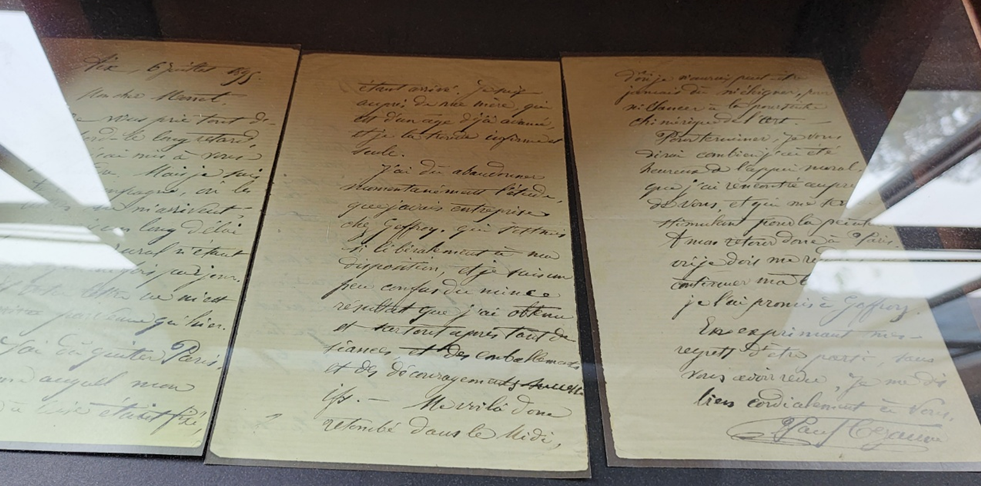 Aix, 6 juillet 1895
Mon cher Monet.
vous prie tout de
long retard,
mis à vous
Mais je suis
campagne, où les
m'arrivant,
long délai
rural n'étant
par jour.
lettre ne m'est
qu'hier.
J'ai dû quitter Paris,
auquel mon
était fixé,
étant arrivé. Je suis
auprès de ma mère, qui
est d'un age déjà avancé,
et je la trouve infirme et
seule.
J'ai dû abandonner
momentanément l'étude
que j'avais entreprise
chez Geffroy, qui s'est mis
si libéralement à ma
disposition, et je suis un
peu confus du mince
résultat que j'ai obtenu
et surtout après tant de
séances et des emballements
et des découragements success
ifs. — Me voilà donc
retombé dans le Midi,
d'où je n'aurais peut-être
jamais dû m'éloigner, pour
m'élancer à la poursuite
chimérique de l'art —
Pour terminer, je vous
dirai combien j'ai été
heureux de l'appui moral
que j'ai rencontré auprès
de vous, et qui me sert
stimulant pour la peinture
A mon retour donc à Paris
où je dois me
continuer ma
je l'ai promis à Geffroy.
En exprimant mes
regrets d'être parti sans
vous avoir revu, je me dis
bien cordialement à Vous.
Paul Cezanne